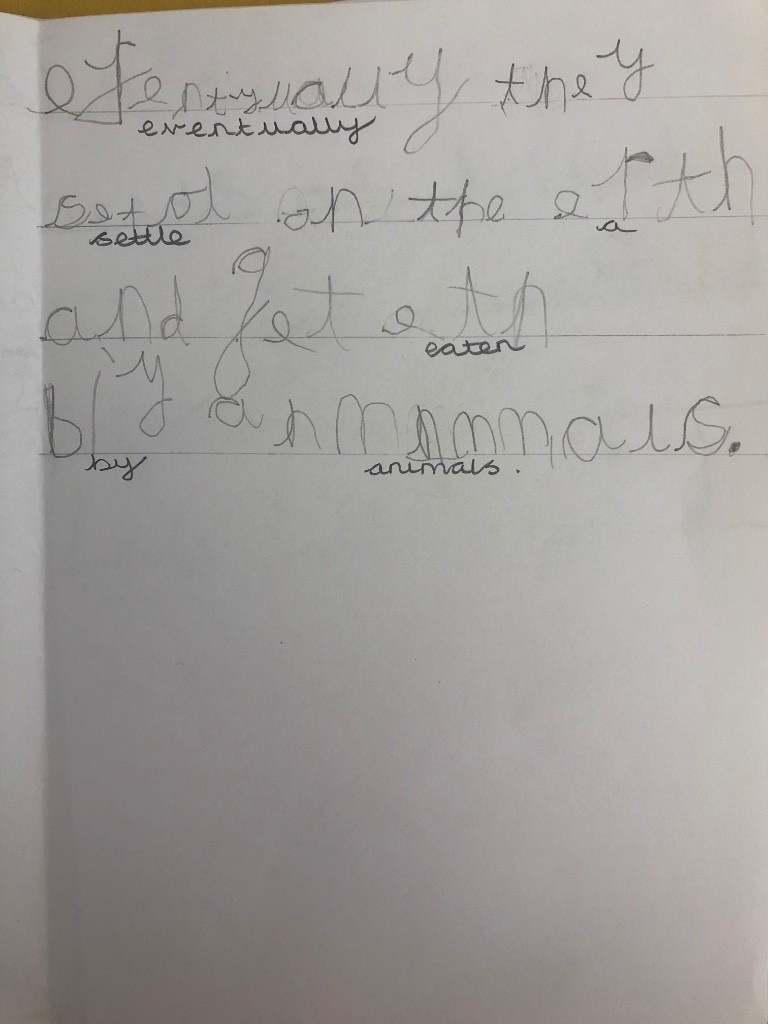 efentyually they
eventually
setol on the erth
settle a
and get eth
eaten
biy anmnmals.
by animals.